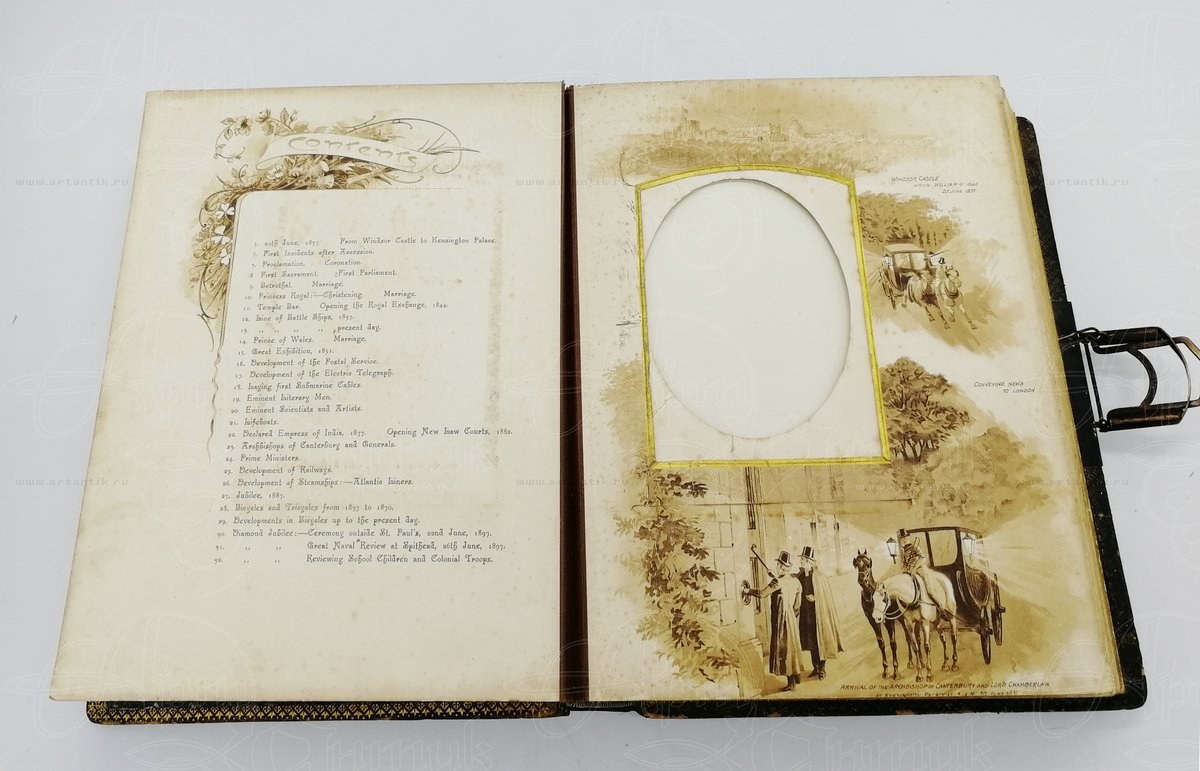 Contents
1. 20th June, 1837. From Windsor Castle to Kensington Palace.
First Incidents after Accession.
Proclamation. Coronation.
8 First Sacrament. First Parliament.
9. Betrothal. Marriage.
10. Princess Royal:—Christening. Marriage.
11. Temple Bar. Opening the Royal Exchange, 1844.
12. Line of Battle Ships, 1837.
13. ,, ,, ,, ,, present day.
14. Prince of Wales. Marriage.
15. Great Exhibition, 1851.
16. Development of the Postal Service.
17. Development of the Electric Telegraph.
18. Laying first Submarine Cables.
19. Eminent Literary Men.
20 Eminent Scientists and Artists.
21. Lifeboats.
22. Declared Empress of India, 1877. Opening New Law Courts, 1882.
23. Archbishops of Canterbury and Generals.
24. Prime Ministers.
25. Development of Railways.
26. Development of Steamships:—Atlantic Liners.
27. Jubilee, 1887.
28. Bicycles and Tricycles from 1837 to 1870.
29. Developments in Bicycles up to the present day.
30. Diamond Jubilee:—Ceremony outside St. Paul's, 22nd June, 1897.
31. ,, ,, Great Naval Review at Spithead, 26th June, 1897.
32. ,, ,, Reviewing School Children and Colonial Troops.
WINDSOR CASTLE
WHEN WILLIAM IV DIED
20 JUNE 1837
CONVEYING NEWS
TO LONDON
ARRIVAL OF THE ARCHBISHOP OF CANTERBURY AND LORD CHAMBERLAIN
www.artantik.ru